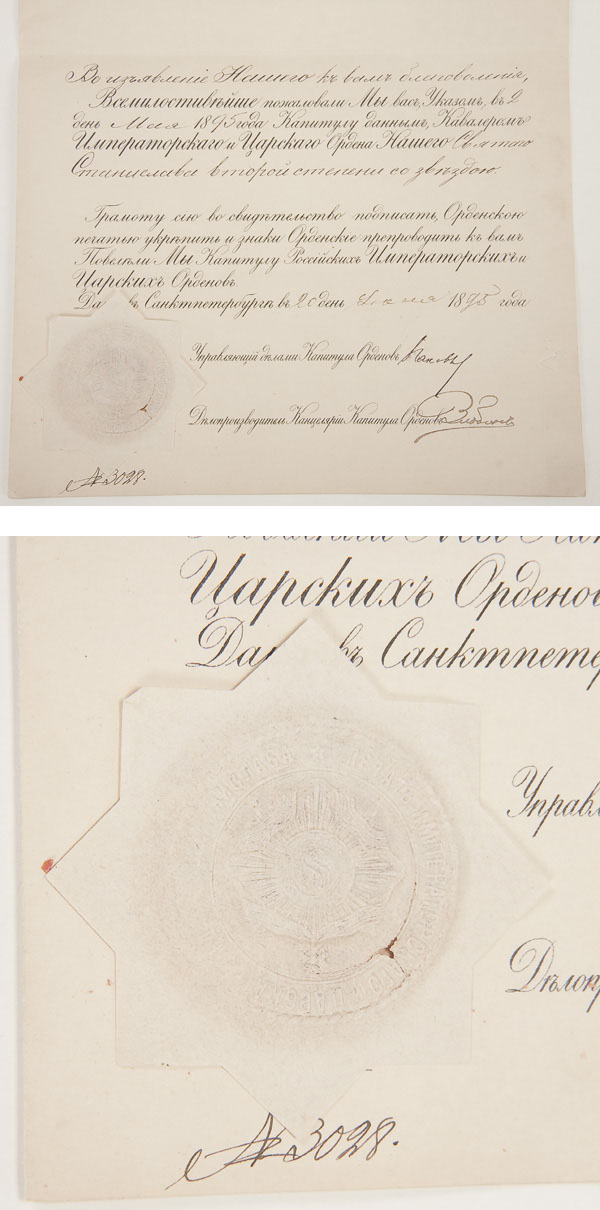 Во изъявленіе Нашего къ вамъ благоволенія,
Всемилостивѣйше пожаловали Мы васъ, Указомъ, въ 2
день Мая 1895 года Капитулу даннымъ, Кавалеромъ
Императорскаго и Царскаго Ордена Нашего Святаго
Станислава второй степени со звѣздою.
Грамоту сію во свидѣтельство подписать, Орденскою
печатью укрѣпить и знаки Орденскіе препроводить къ вамъ
Повелѣли Мы Капитулу Россійскихъ Императорскихъ и
Царскихъ Орденовъ.
Да въ Санктпетербургѣ въ 20 день 1895 года
Управляющій дѣлами Капитула Орденовъ
Дѣлопроизводитель Канцеляріи Капитула Орденовъ
№ 3028.
Царскихъ Орденов
Да въ Санктпетер
Управл
Дѣлопр
№ 3028.